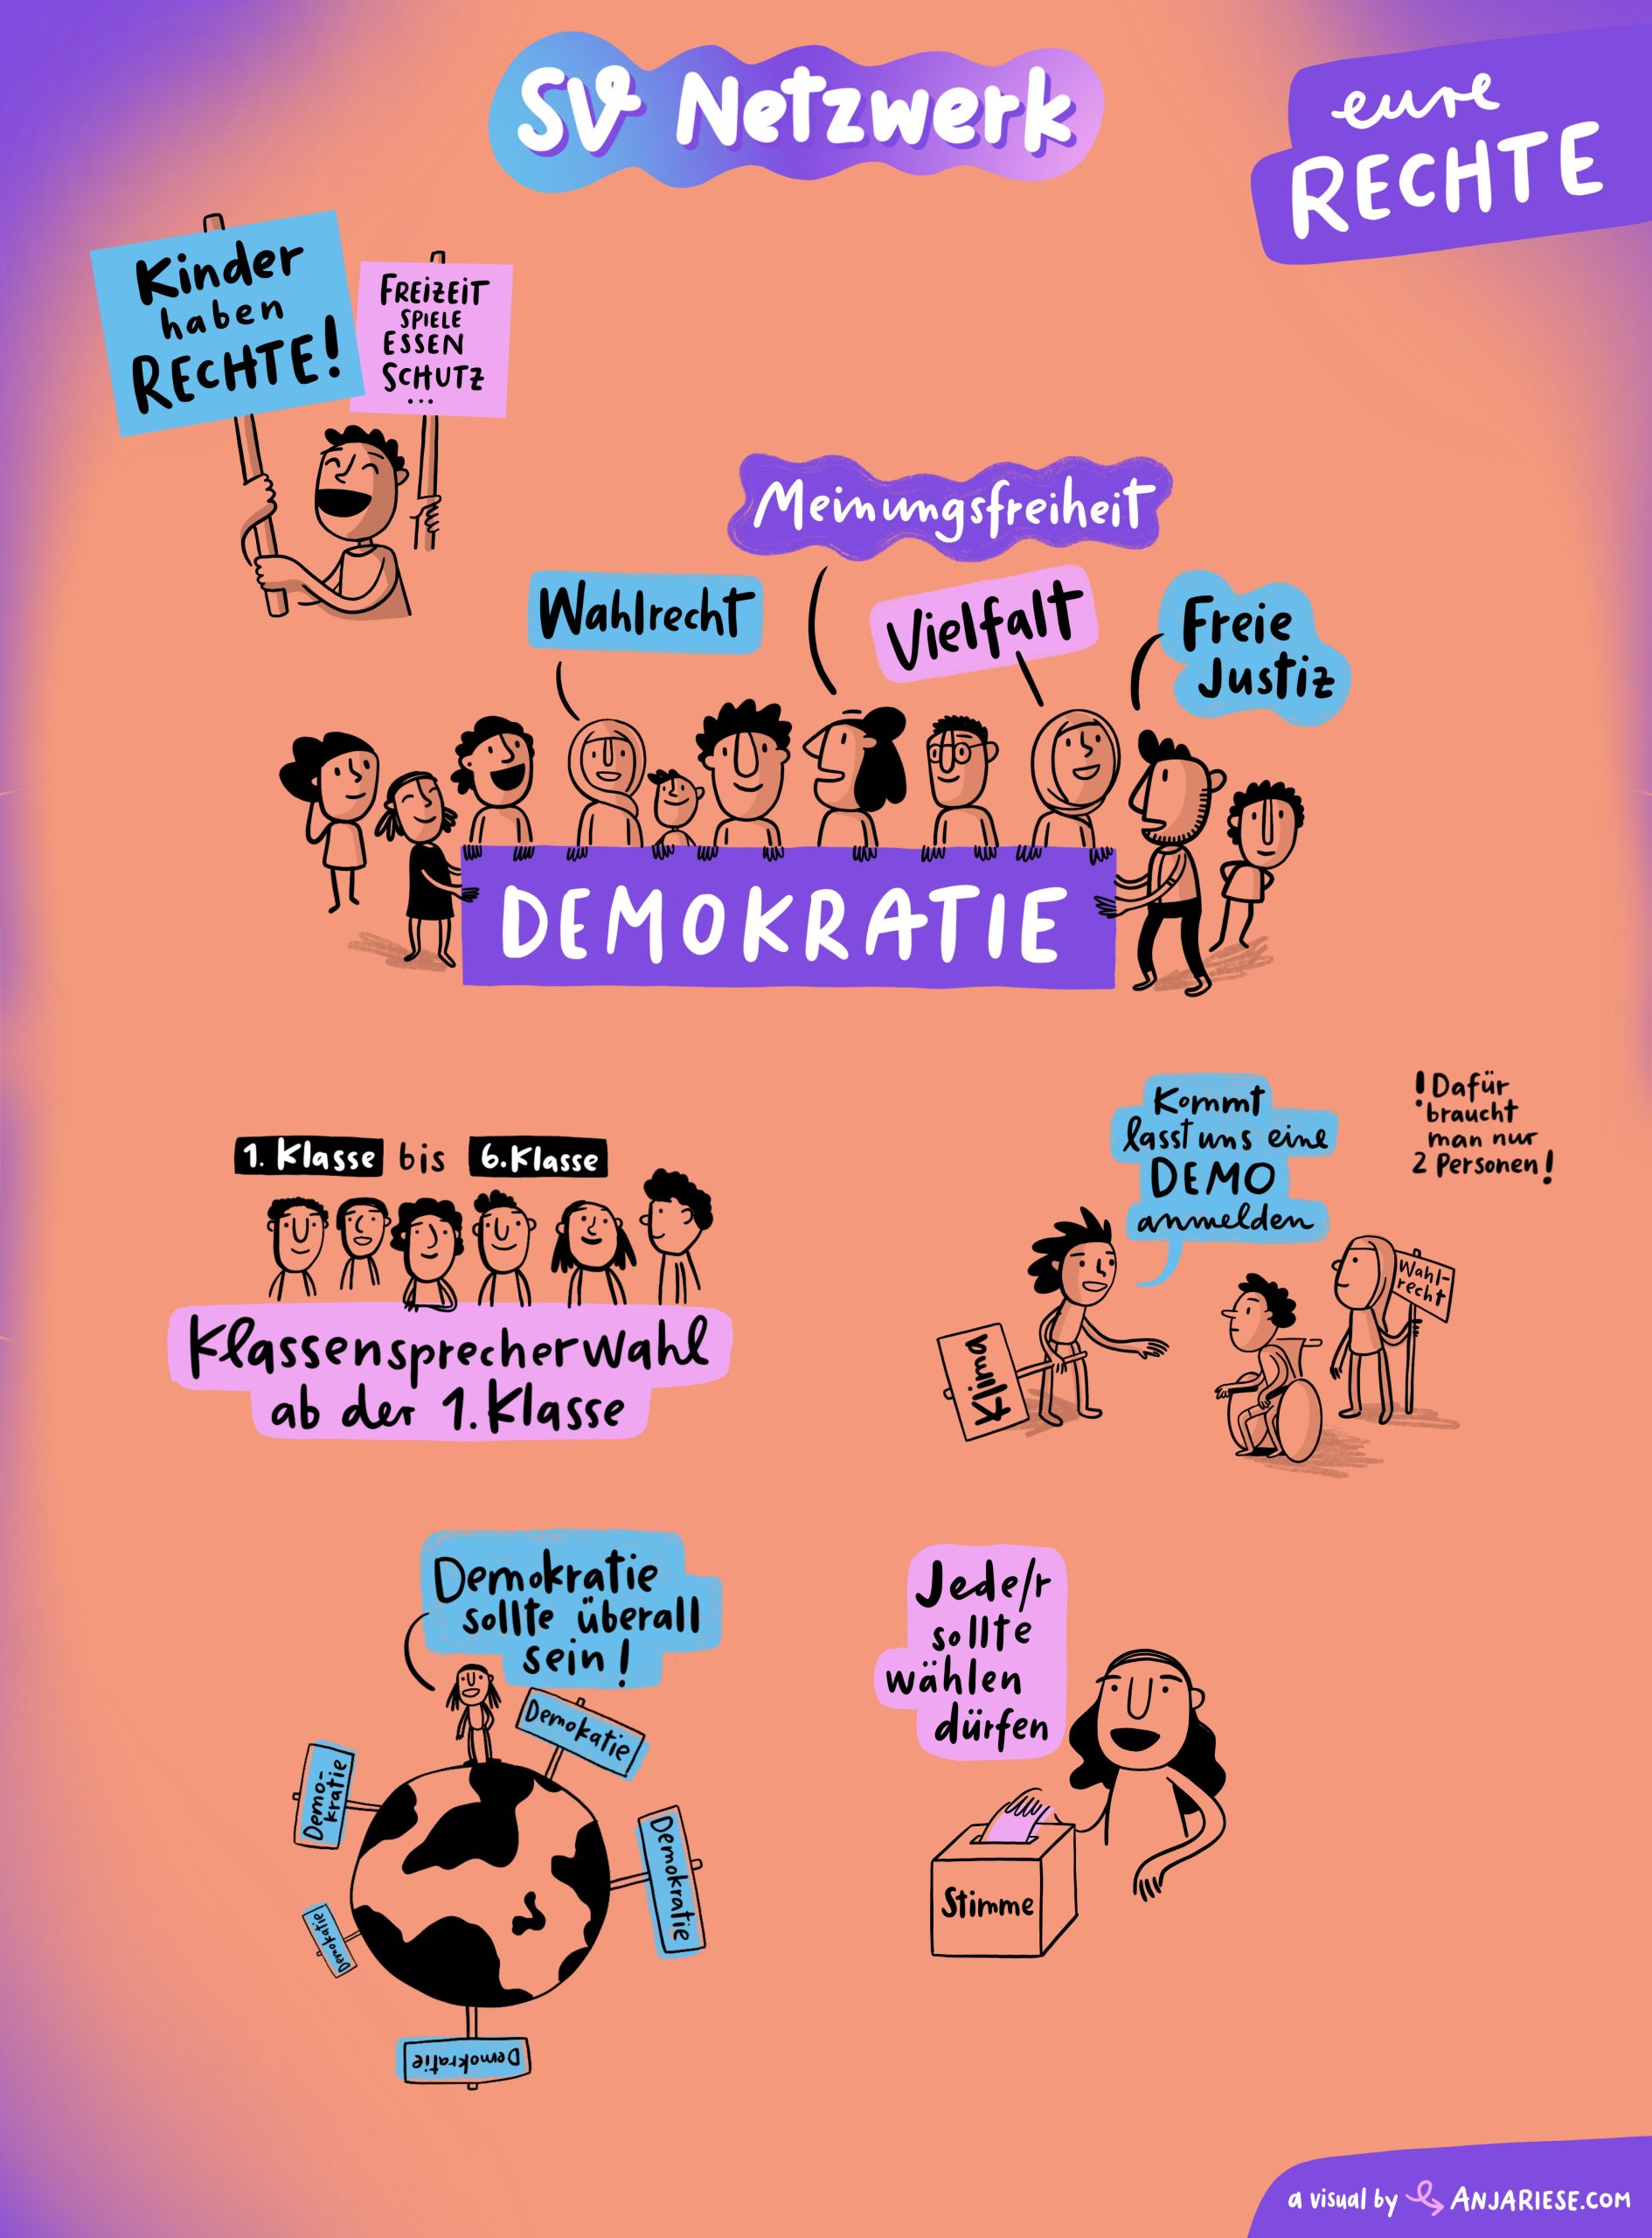 SV Netzwerk
eure
RECHTE
Kinder
haben
RECHTE!
FREIZEIT
SPIELE
ESSEN
SCHUTZ
...
Meinungsfreiheit
Wahlrecht
Vielfalt
Freie
Justiz
DEMOKRATIE
1. Klasse bis 6. Klasse
Klassensprecherwahl
ab der 1. Klasse
Kommt
lasst uns eine
DEMO
anmelden
! Dafür
braucht
man nur
2 Personen!
Klima
Wahl-
recht
Demokratie
sollte überall
sein!
Demokatie
Demo-
kratie
Demokratie
Demokratie
Demokratie
Jede/r
sollte
wählen
dürfen
Stimme
a visual by ANJARIESE.COM